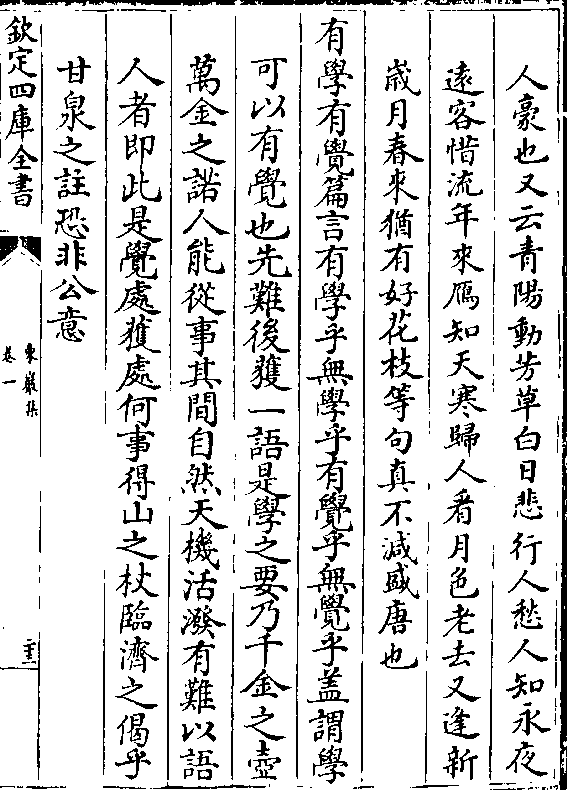 人豪也又云青陽動芳草白日悲行人愁人知永夜
遠客惜流年來鴈知天寒歸人看月色老去又逢新
歳月春來猶有好花枝等句真不減盛唐也
有學有覺篇言有學乎無學乎有覺乎無覺乎蓋謂學
可以有覺也先難後獲一語是學之要乃千金之壺
萬金之諾人能從事其間自然天機活潑有難以語
人者即此是覺處獲處何事得山之杖臨濟之偈乎
甘泉之註恐非公意
欽定四庫全書
東巖集
卷一